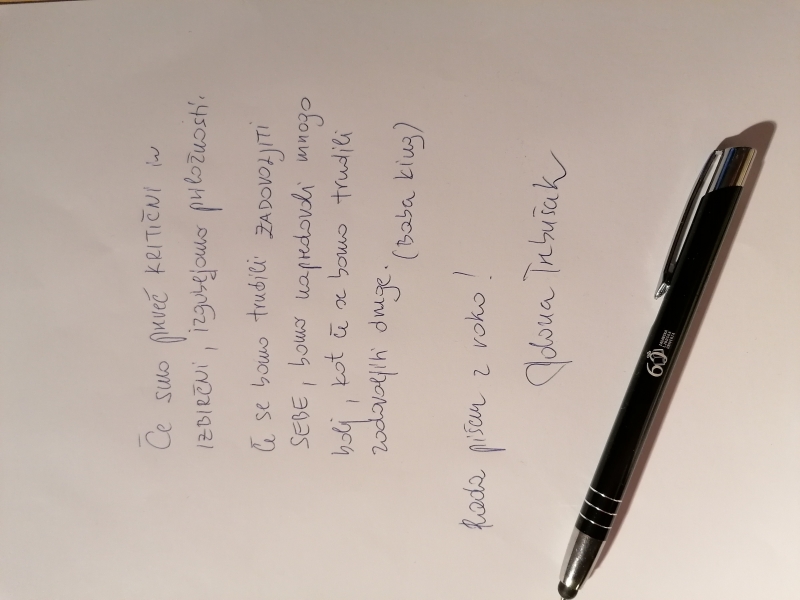 Če smo preveč KRITIČNI in
IZBIRČNI, izgubljamo priložnosti.
Če se bomo trudili ZADOVOLJITI
SEBE, bomo napredovali mnogo
bolj, kot če se bomo trudili
zadovoljiti druge. (Baba King)
Rada pišem z roko!
Jolona Trbušak
60